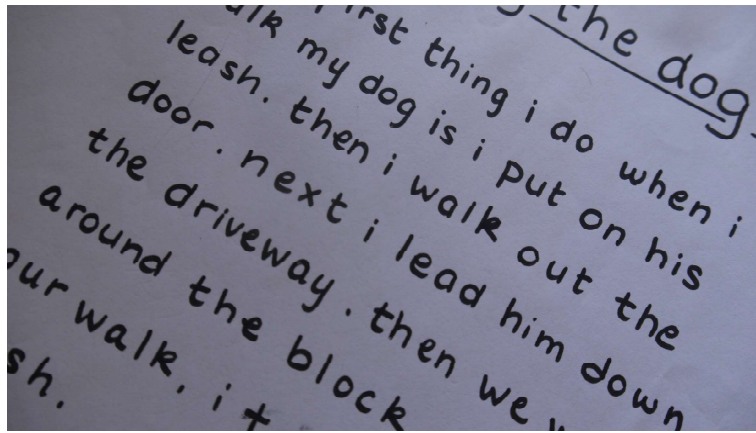 the dog
first thing i do when i
walk my dog is i put on his
leash. then i walk out the
door. next i lead him down
the driveway. then we
around the block
our walk, i